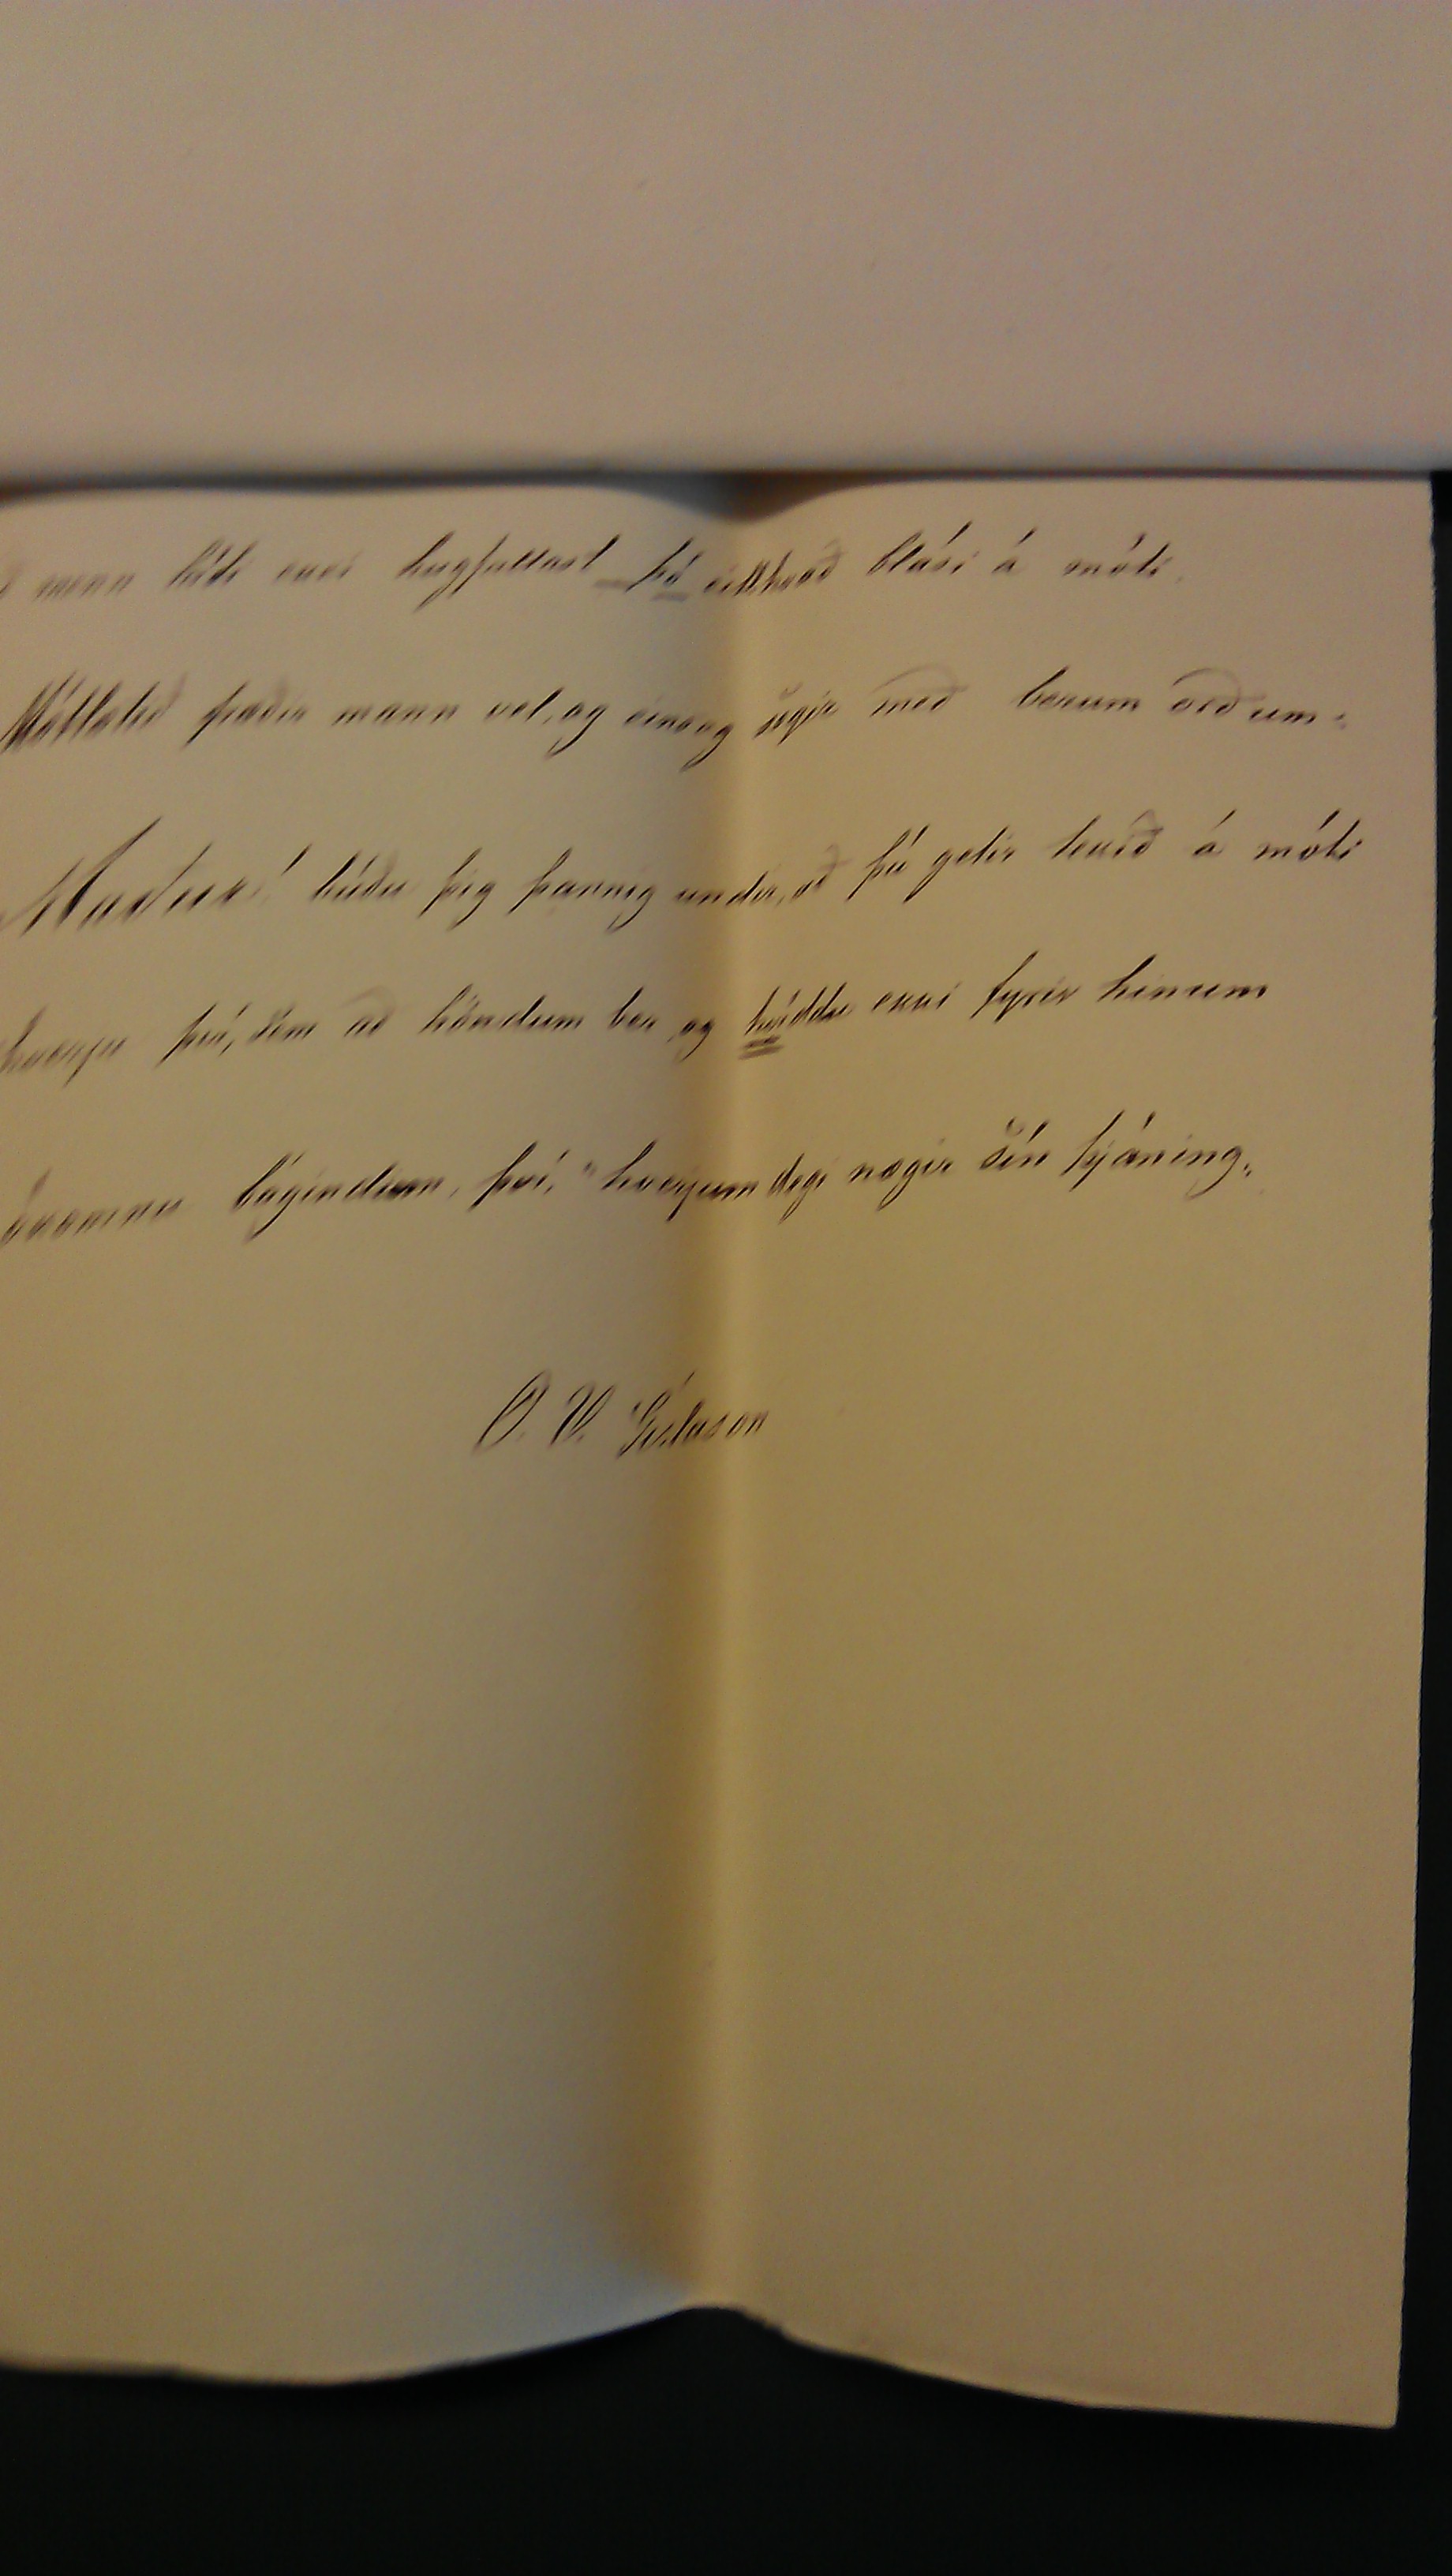 menn láti ekki hugfallast – þó eitthvað blási á móti.
Mótlætið fræðir mann vel, og eins og segir með berum orðum:
Maður! búðu þig þannig undir, að þú getir tekið á móti
hverju því, sem að höndum ber, og kvíddu ekki fyrir hinum
ókomnu bágindum, því, "hverjum degi nægir sín þjáning„
O. V. Gíslason